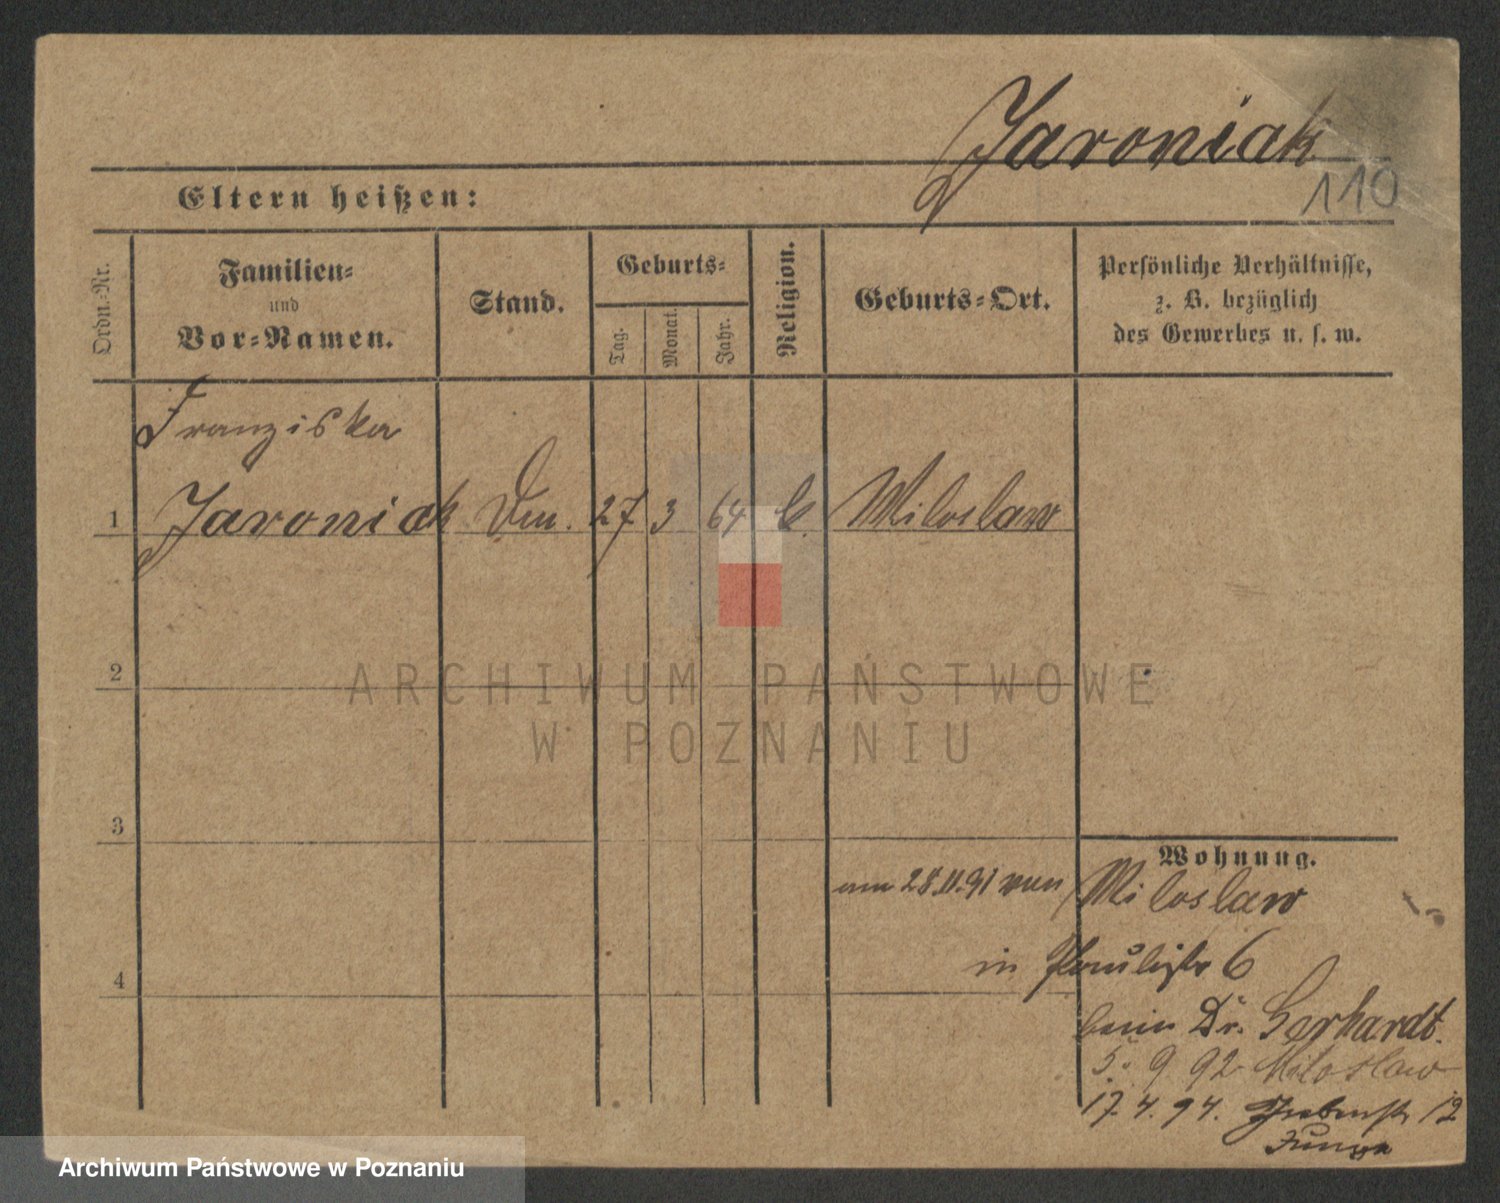 Jaroniak
110
Eltern heißen:
Ordn.-Nr.
Familien-
und
Vor-Namen.
Stand.
Geburts-
Tag.
Monat.
Jahr.
Religion.
Geburts-Ort.
Persönliche Verhältnisse,
z. B. bezüglich
des Gewerbes u. s. w.
Franziska
1 Jaroniak 27 3 64 Miloslaw
2
3
4
Wohnung.
am 28. 91 von Miloslaw
in Paulistr 6
beim Dr. Gerhardt.
5. 9 92 Miloslaw
17. 4. 94. 12
ARCHIWUM PAŃSTWOWE
W POZNANIU
Archiwum Państwowe w Poznaniu